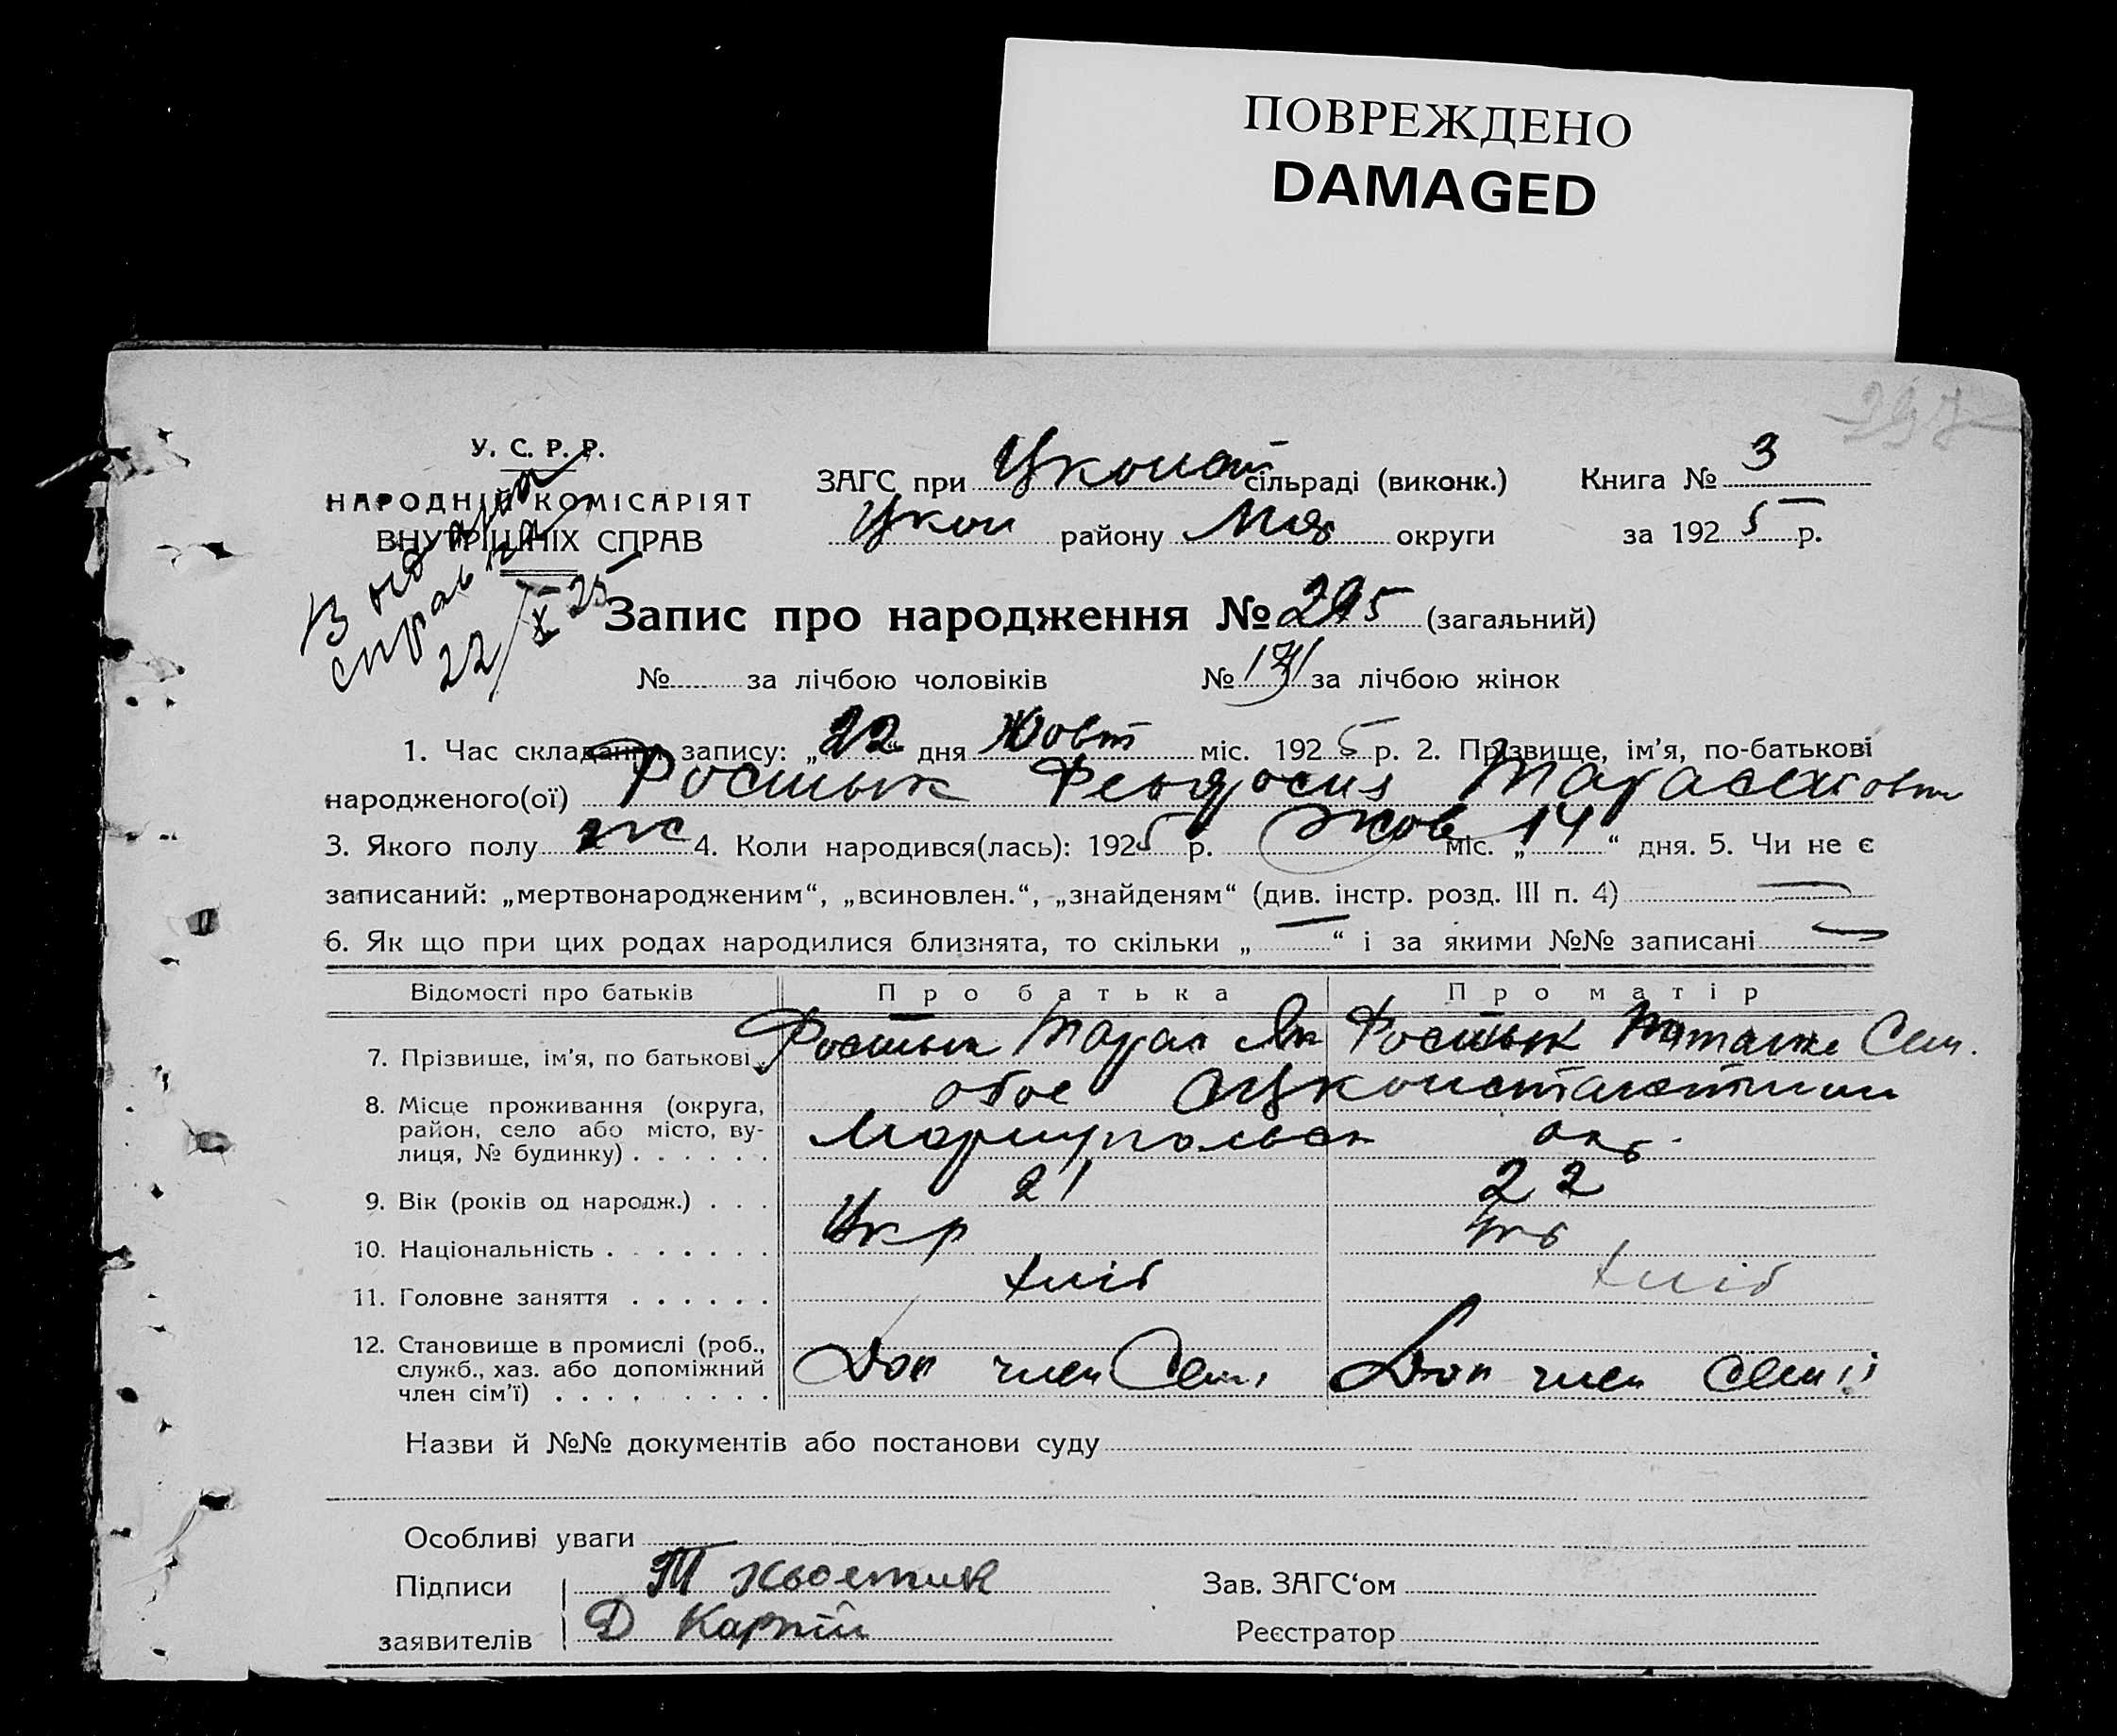 ПОВРЕЖДЕНО
DAMAGED
297
У. С. Р. Р.
НАРОДНІЙ КОМІСАРІЯТ
ВНУТРІШНІХ СПРАВ
ЗАГС при Уконст сільраді (виконк.) Книга № 3
Укон району Мар округи за 1925 р.
22/X 25
Запис про народження № 295 (загальний)
№ за лічбою чоловіків № 141 за лічбою жінок
1. Час складання запису: „22“ дня Жовт міс. 1925 р. 2. Прізвище, ім’я, по-батькові
народженого(ої) Фостык Феодосия Тарасеновн
3. Якого полу ж 4. Коли народився(лась): 1925 р. Жов міс. „14“ дня. 5. Чи не є
записаний: „мертвонародженим“, „всиновлен.“, „знайденям“ (див. інстр. розд. III п. 4) —
6. Як що при цих родах народилися близнята, то скільки „—“ і за якими №№ записані —
Відомості про батьків Про батька Про матір
7. Прізвище, ім’я, по батькові Фостык Тарас Як Фостык Наталка Сем.
8. Місце проживання (округа, район, село або місто, вулиця, № будинку) . . . . . . обое Уконстантин
Мариупольск окр.
9. Вік (років од народж.) . . . 21 22
10. Національність . . . . . . . Укр Укр
11. Головне заняття . . . . . . хліб хліб
12. Становище в промислі (роб., служб., хаз. або допоміжний член сім’ї) . . . . . . . . . Доп член Семі Доп член Семіі
Назви й №№ документів або постанови суду
Особливі уваги
Підписи Т Хвостик Зав. ЗАГС‘ом
заявителів Д Карпій Реєстратор